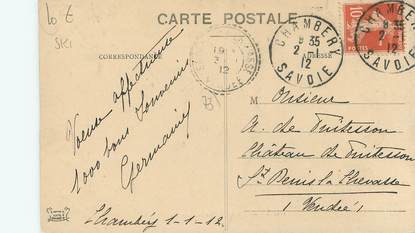 10 €
SKI
CARTE POSTALE
CORRESPONDANCE
ADRESSE
CHAMBERY
8 35
2 -1
12
SAVOIE
10
Voeux affectueux
1000 bons Souvenirs
Germaine
Chambéry 1-1-12.
Monsieur
A. de Fontesson
Château de Fontesson
St Denis la Chevasse
(Vendée)